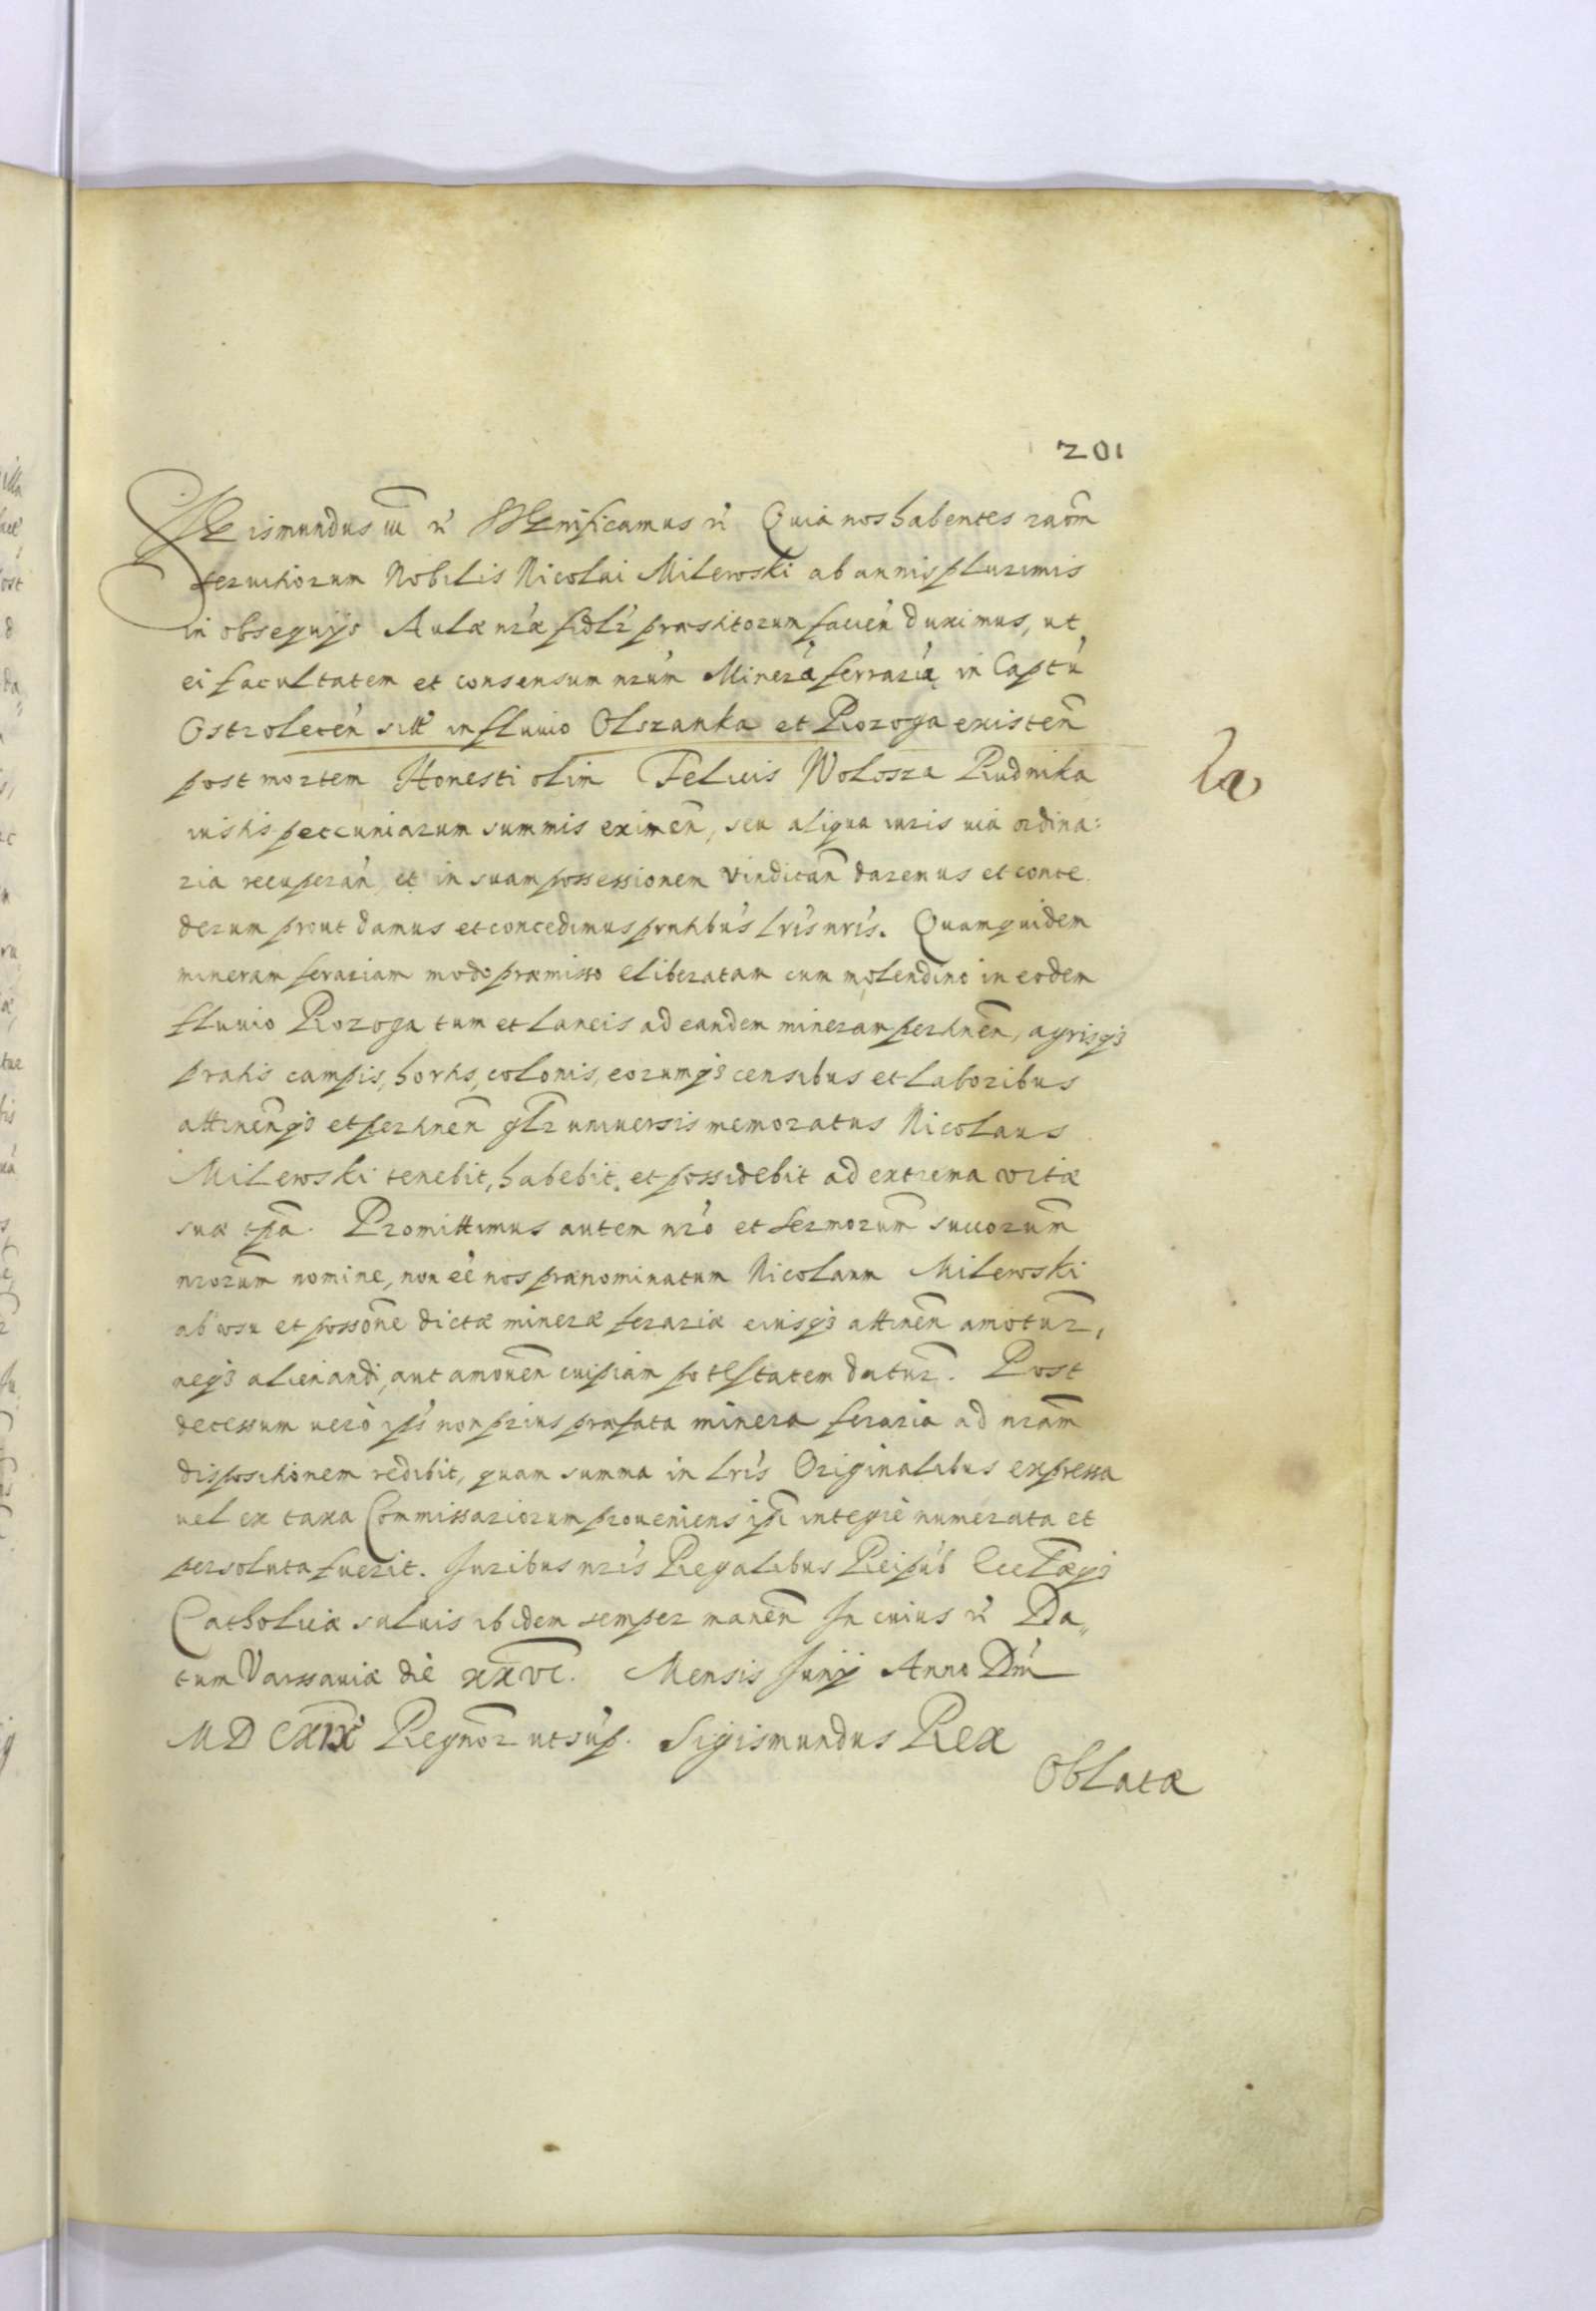 201
Sigismundus III r̃ Significamus r̃ Quia nos habentes raom̃
seruitiorum Nobilis Nicolai Milewski ab annis plurimis
in obsequijs Aulæ nr̃æ fidlr̃ præstitorum facien̄ duximus, ut
ei facultatem et consensum nr̃um Mineræ ferrariæ in Captũ
Ostrolecen̄ sitæ in fluuio Olszanka et Rozoga existen̄
post mortem Honesti olim Felicis Wolosza Rudnika
iustis peccuniarum summis eximen̄, seu aliqua iuris uia ordina:
ria recuperan̄ et in suam possessionem vindican̄ daremus et conce
derem prout damus et concedimus pr̃ntibus lr̃is nr̃is. Quamquidem
mineram ferariam modo præmisso eliberatam cum molendino in eodem
fluuio Rozoga tum et laneis ad eandem mineram pertinen̄, agrisq3
pratis campis, hortis, colonis, eorumq3 censibus et laboribus
attinen̄q3 et pertinen̄ glr̃ uniuersis memoratus Nicolaus
Milewski tenebit, habebit, et possidebit ad extrema vitæ
suæ tp̃a. Promittimus autem nr̃o et Sermorum̃ succorum̃
nrorum̃ nomine, non eẽ nos prænominatum Nicolaum Milewski
ab vsu et possonē dictæ mineræ ferariæ eiusq3 attinen̄ amotur̃,
neq3 alienandi, aut amouen̄ cuipiam potestatem datur̃. Post
decessum uerò ip̃s non prius præfata minera feraria ad nram̃
dispositionem redibit, quam summa in lr̃is Originalibus expressa
uel ex taxa Commissariorum proueniens ip̃i integrè numerata et
persoluta fuerit. Juribus nr̃is Regalibus Reipub̃ Eccl̃æq3
Catholicæ saluis ibidem semper manen̄ In cuius r̃ Da„
tum Varssauiæ diè xxvi. Mensis Junij Anno Dn̄i
MDCXIX Regnor̃ ut sup̃. Sigismundus Rex
Oblata